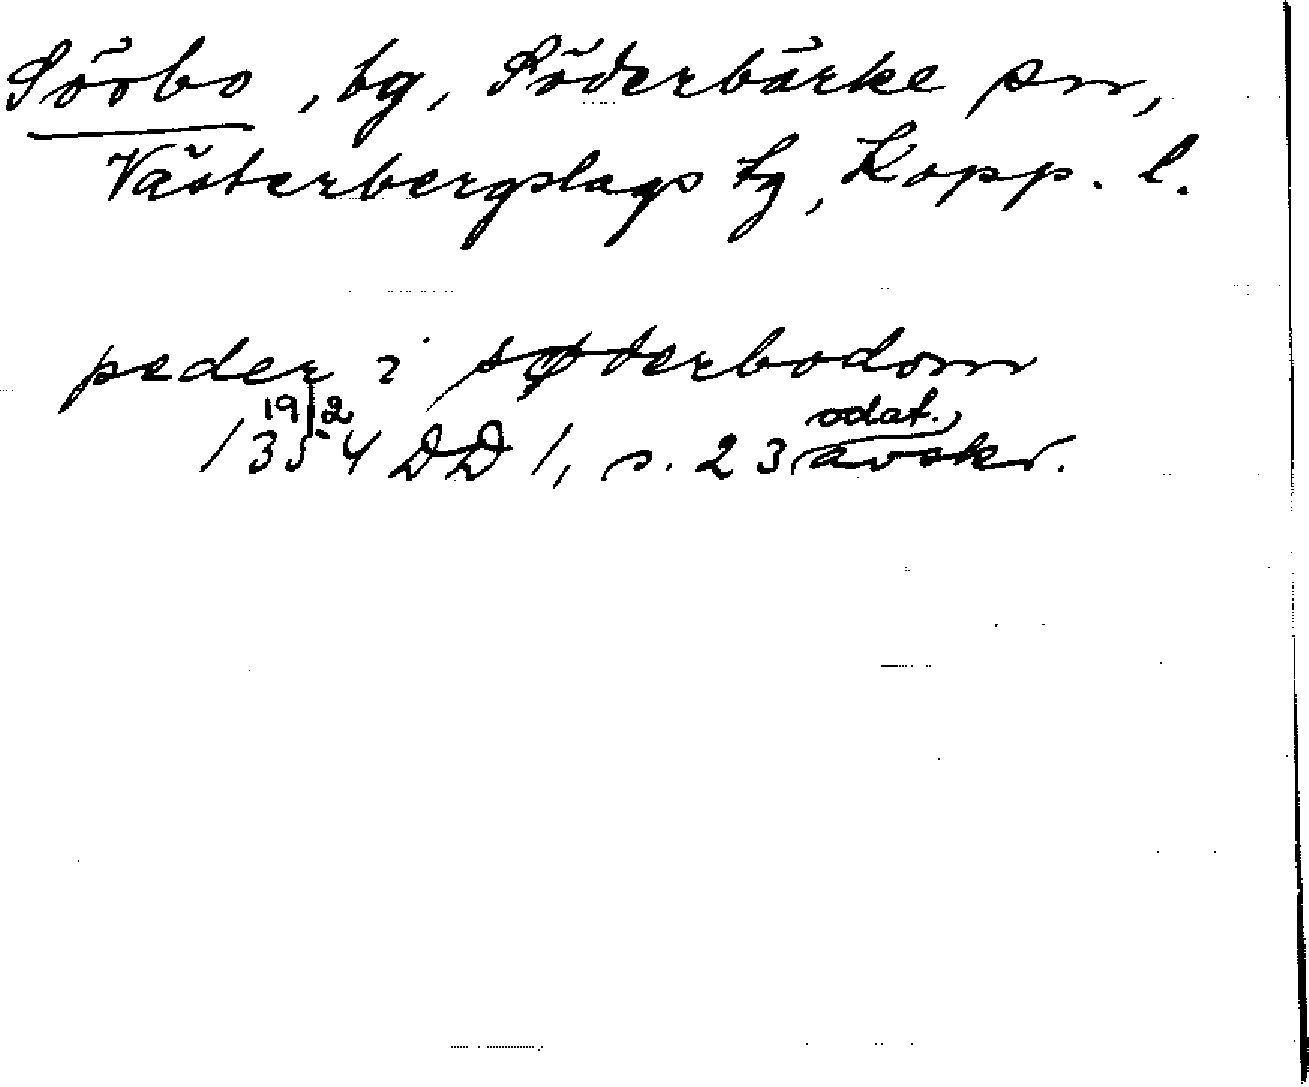 Sörbo, by, Söderbärke sn,
Västerbergslags tg, Kopp. l.
peder i søderbodom
19/2 odat.
1354 DD 1, s. 23 avskr.